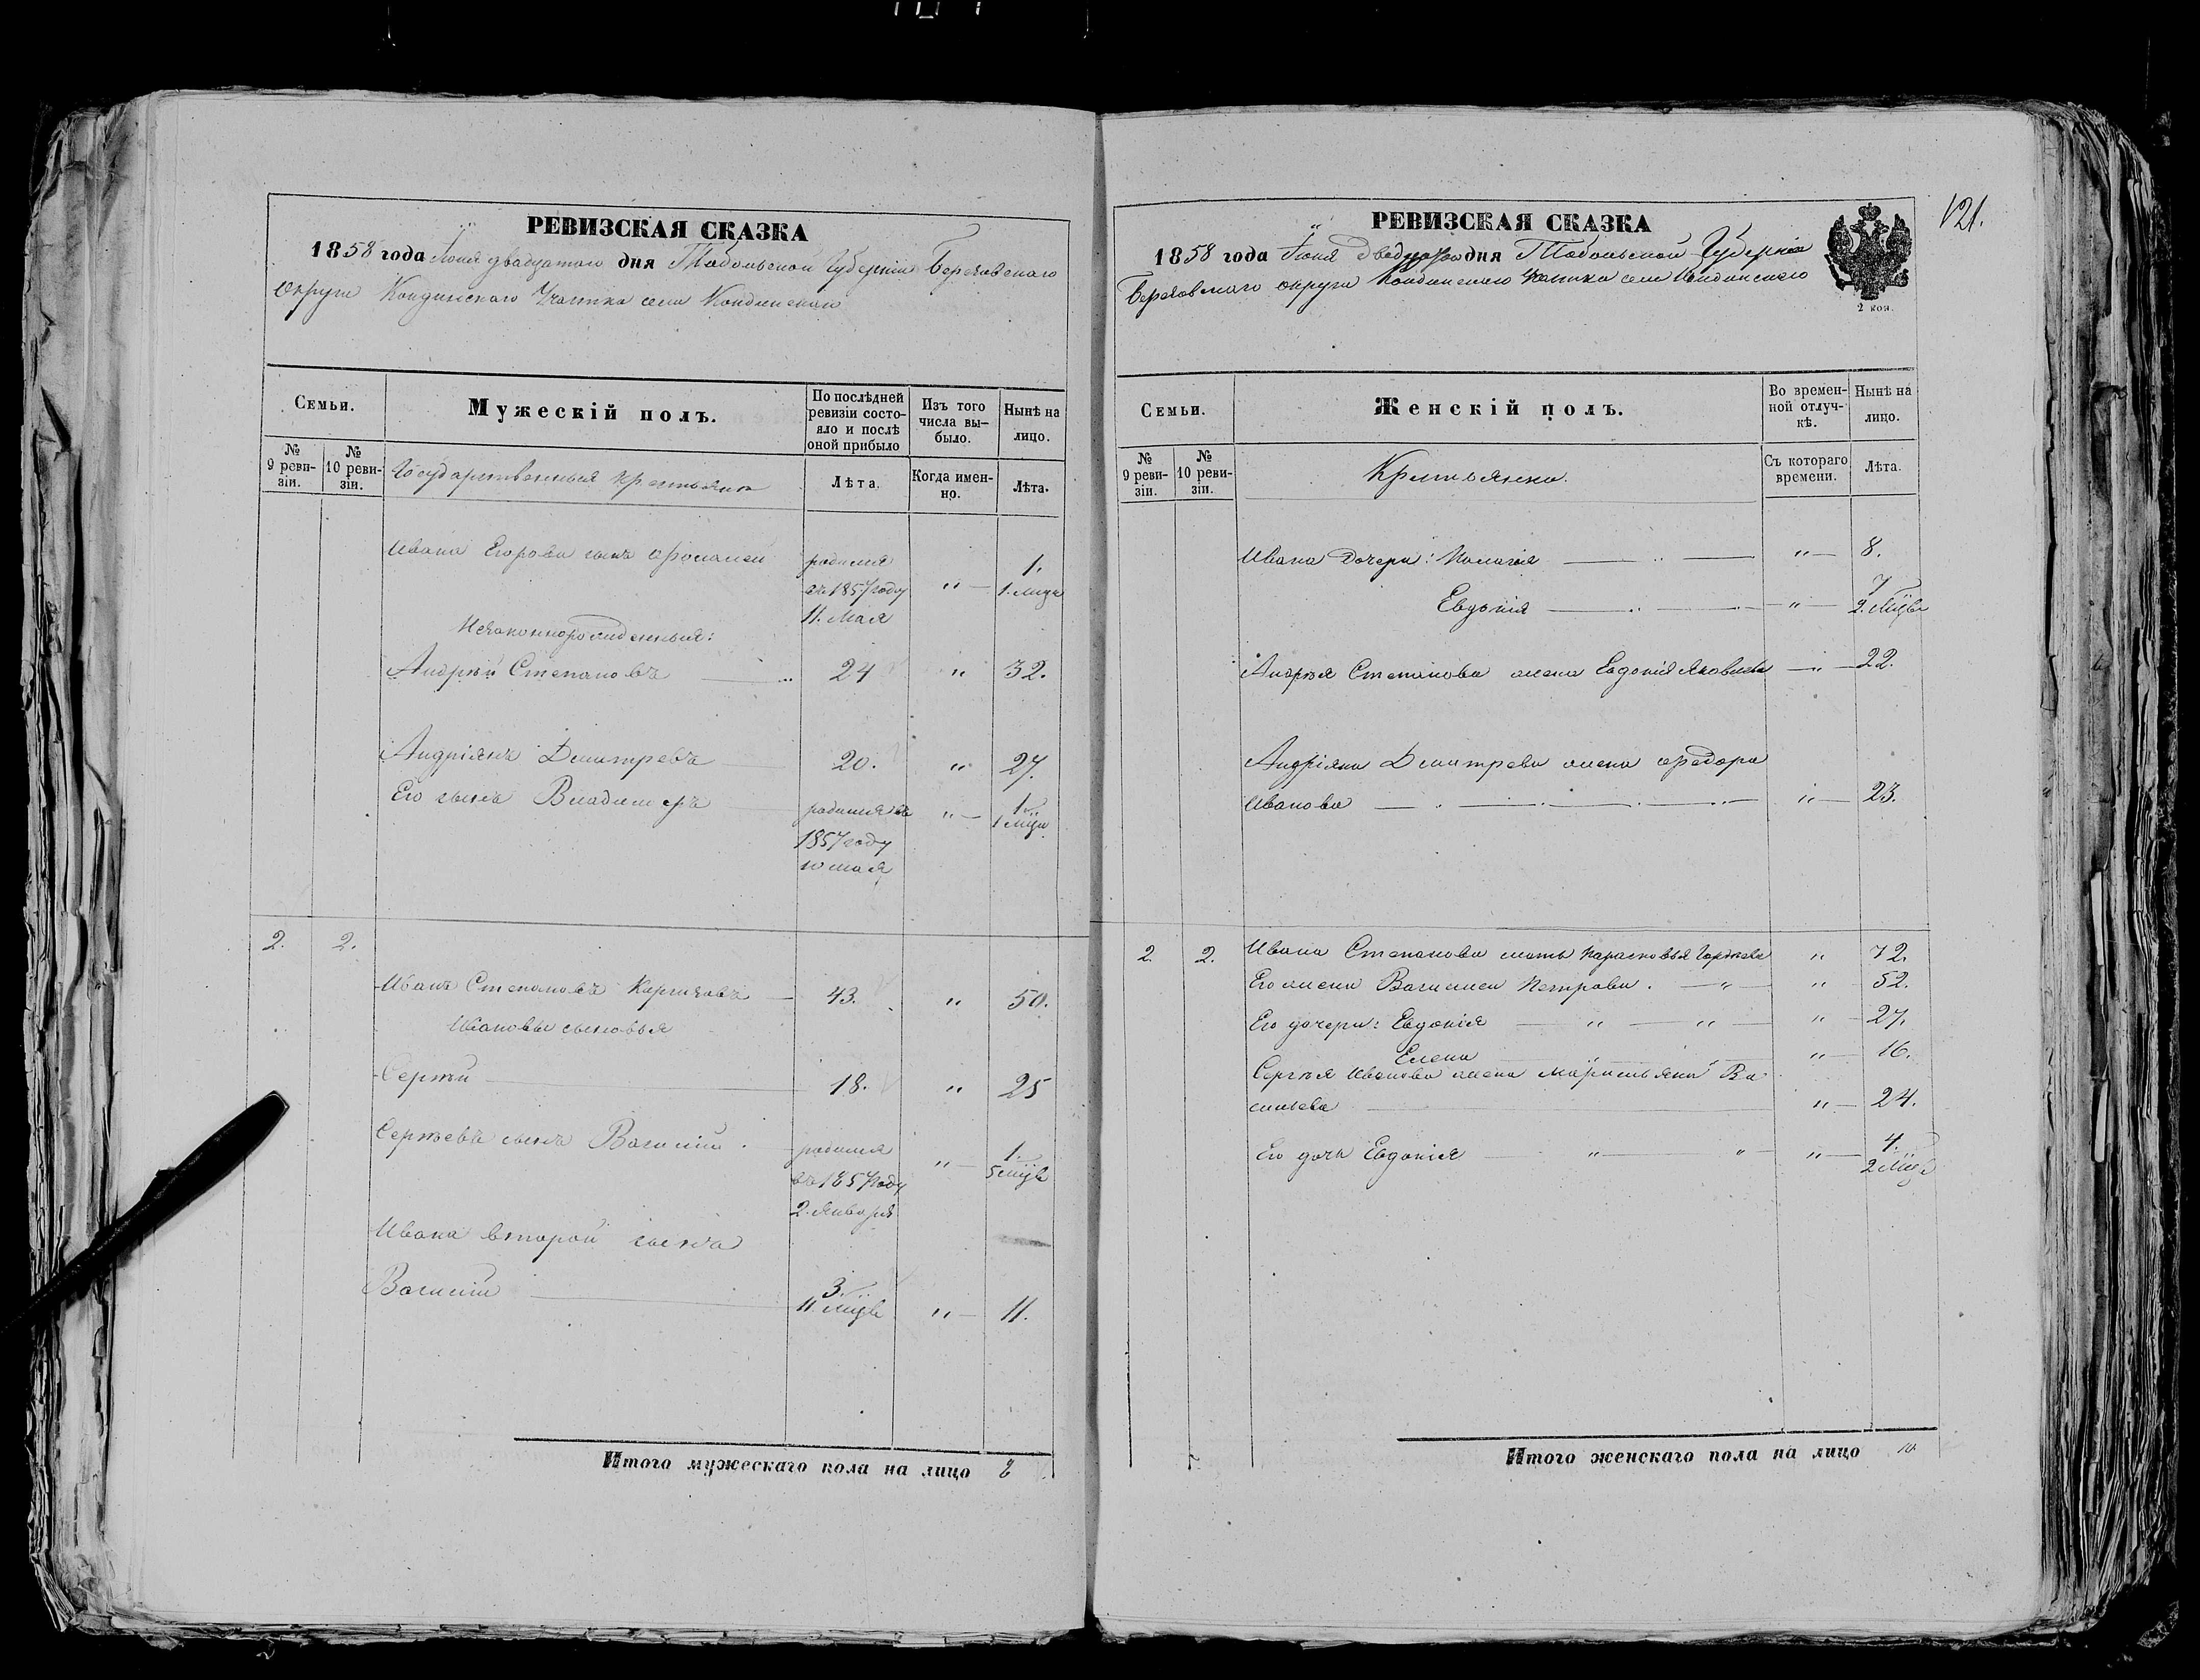 РЕВИЗСКАЯ СКАЗКА
1858 года Іюня двадцатаго дня Тобольской Губерніи Березовскаго
Округа Кондинскаго Участка села Кондинскаго
Семьи.
Мужескій полъ.
По послѣдней ревизіи состояло и послѣ оной прибыло
Изъ того числа выбыло.
Нынѣ на лицо.
№ 9 ревизіи.
№ 10 ревизіи.
Государственныя крестьяне
Лѣта.
Когда именно.
Лѣта.
Ивана Егорова сынъ родился 1.
въ 1857 году " 1. мцъ
11. Мая
Незаконнорожденныя:
Андрей Степановъ 24 " 32.
Андріянъ Дмитревъ 20. " 27.
Его сынъ Владимеръ родился въ " 1.
1 мцъ
1857 году
10 мая
2. 2.
Иванъ Степановъ 43. " 50.
Ивановы сыновья
Сергѣй 18. " 25
Сергѣевъ сынъ Василій родился " 1.
въ 1857 году 5 мцвъ
2. Января
Ивана второй сынъ
Василій 3.
11. мцвъ " 11.
Итого мужескаго пола на лицо 8
121.
РЕВИЗСКАЯ СКАЗКА
1858 года Іюня двадцатаго дня Тобольской Губерніи
Березовскаго округа Кондинскаго Участка села Кондинскаго
2 коп.
Семьи.
Женскій полъ.
Во временной отлучкѣ.
Нынѣ на лицо.
№ 9 ревизіи.
№ 10 ревизіи.
Крестьянки.
Съ котораго времени.
Лѣта.
Ивана дочери: Палагія " 8.
Евдокія " 7
2. Мцвъ
Андрея Степанова жена Евдокія Яковлева " 22.
Андріяна Дмитрева жена Ѳедора
Иванова " 23.
2. 2. Ивана Степанова мать Парасковья " 72.
Его жена Василиса Петрова. " 52.
Его дочери: Евдокія " " " 27.
Елена " 16.
Сергѣя Иванова жена Маремьяна Ва
сильева " 24.
Его дочь Евдокія " " " 4.
2 Мцъ
Итого женскаго пола на лицо 10